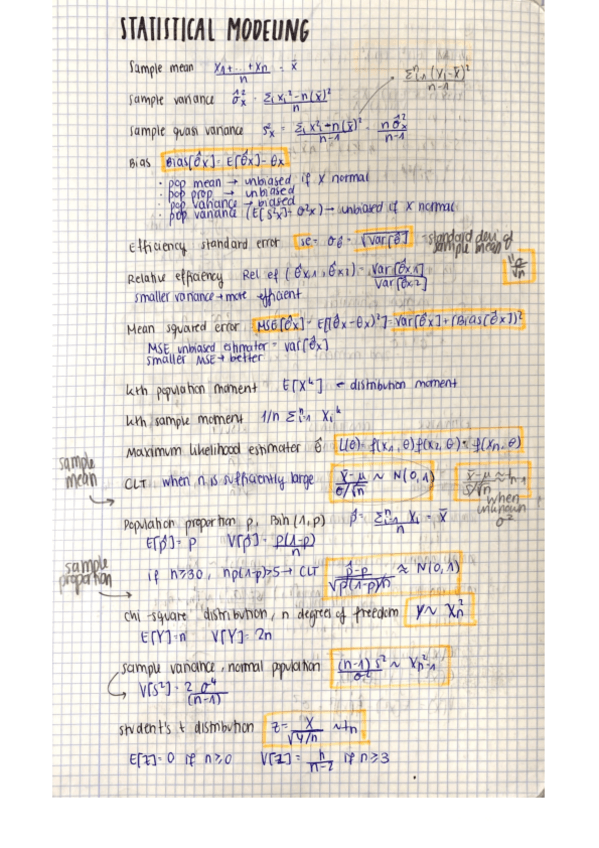 STATISTICAL MODELING
Sample mean (x₁+...+xₙ)/n = x̄
Σⁿᵢ₌₁(xᵢ-x̄)²/(n-1)
Sample variance σ̂²ₓ = (Σᵢxᵢ²-n(x̄)²)/n
Sample quasi variance s²ₓ = (Σᵢxᵢ²-n(x̄)²)/(n-1) = nσ̂²ₓ/(n-1)
Bias Bias[θ̂x] = E[θ̂x]-θx
· pop mean → unbiased if X normal
· pop prop → unbiased
· pop variance → biased
· pop variance (E[s²x]=σ²x) → unbiased if X normal
Efficiency standard error se = σθ̂ = √Var[θ̂] =standard dev of sample mean
σ/√n
Relative efficiency Rel ef (θ̂x,1, θ̂x2) = Var[θ̂x1]/Var[θ̂x2]
smaller variance → more efficient
Mean squared error MSE[θ̂x] = E[(θ̂x-θx)²] = Var[θ̂x]+(Bias[θ̂x])²
MSE unbiased estimator = Var[θ̂x]
smaller MSE → better
kth population moment E[Xᵏ] ← distribution moment
kth sample moment 1/n Σⁿᵢ₌₁ Xᵢᵏ
Maximum likelihood estimater θ̂ L(θ) = f(x₁,θ)f(x₂,θ)·f(xₙ,θ)
sample mean
CLT when n is sufficiently large (x̄-μ)/(σ/√n) ~ N(0,1) (x̄-μ)/(s/√n) ≈ tₙ₋₁
when unknown σ²
Population proportion p, Bin(1,p) p̂ = Σⁿᵢ₌₁ Xᵢ/n = x̄
E[p̂] = p V[p̂] = p(1-p)/n
sample proportion
if n≥30, np(1-p)>5 → CLT (p̂-p)/√(p(1-p)/n) ≈ N(0,1)
chi-square distribution, n degrees of freedom Y ~ χ²ₙ
E[Y]=n V[Y]=2n
sample variance, normal population (n-1)s²/σ² ~ χ²ₙ₋₁
V[s²] = 2σ⁴/(n-1)
student's t distribution Z = X/√(Y/n) ~ tₙ
E[Z]=0 if n≥0 V[Z] = n/(n-2) if n≥3